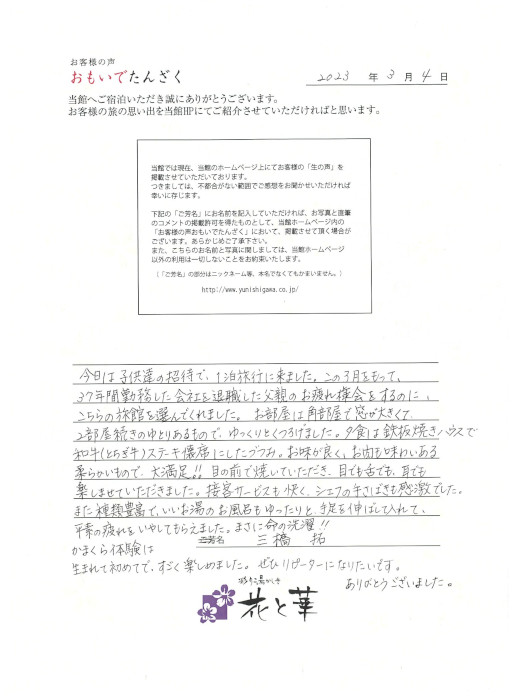 お客様の声
おもいでたんざく
2023 年 3 月 4 日
当館へご宿泊いただき誠にありがとうございます。
お客様の旅の思い出を当館HPにてご紹介させていただければと思います。
当館では現在、当館のホームページ上にてお客様の「生の声」を
掲載させていただいております。
つきましては、不都合がない範囲でご感想をお聞かせいただければ
幸いに存じます。
下記の「ご芳名」にお名前を記入していただければ、お写真と直筆
のコメントの掲載許可を得たものとして、当館ホームページ内の
「お客様の声おもいでたんざく」において、掲載させて頂く場合が
ございます。あらかじめご了承下さい。
また、こちらのお名前と写真に関しましては、当館ホームページ
以外の利用は一切しないことをお約束いたします。
(「ご芳名」の部分はニックネーム等、本名でなくてもかまいません。)
http://www.yunishigawa.co.jp/
今日は子供達の招待で、1泊旅行に来ました。この3月をもって、
37年間勤務した会社を退職した父親のお疲れ様会をするのに、
こちらの旅館を選んでくれました。 お部屋は角部屋で窓が大きくて、
2部屋続きのゆとりあるもので、ゆっくりとくつろげました。夕食は鉄板焼きハウスで
和牛(とちぎ牛)ステーキ懐席にしたづつみ。お味が良く、お肉も味わいある
柔らかいもので、大満足!! 目の前で焼いていただき、目でも舌でも、耳でも
楽しませていただきました。接客サービスも快く、シェフの手さばきも感激でした。
また種類豊富で、いいお湯のお風呂もゆったりと、手足を伸ばして入れて、
平素の疲れをいやしてもらえました。まさに命の洗濯!!
ご芳名 三橋 拓
かまくら体験は
生まれて初めてで、すごく楽しめました。ぜひリピーターになりたいです。
ありがとうございました。
花と華